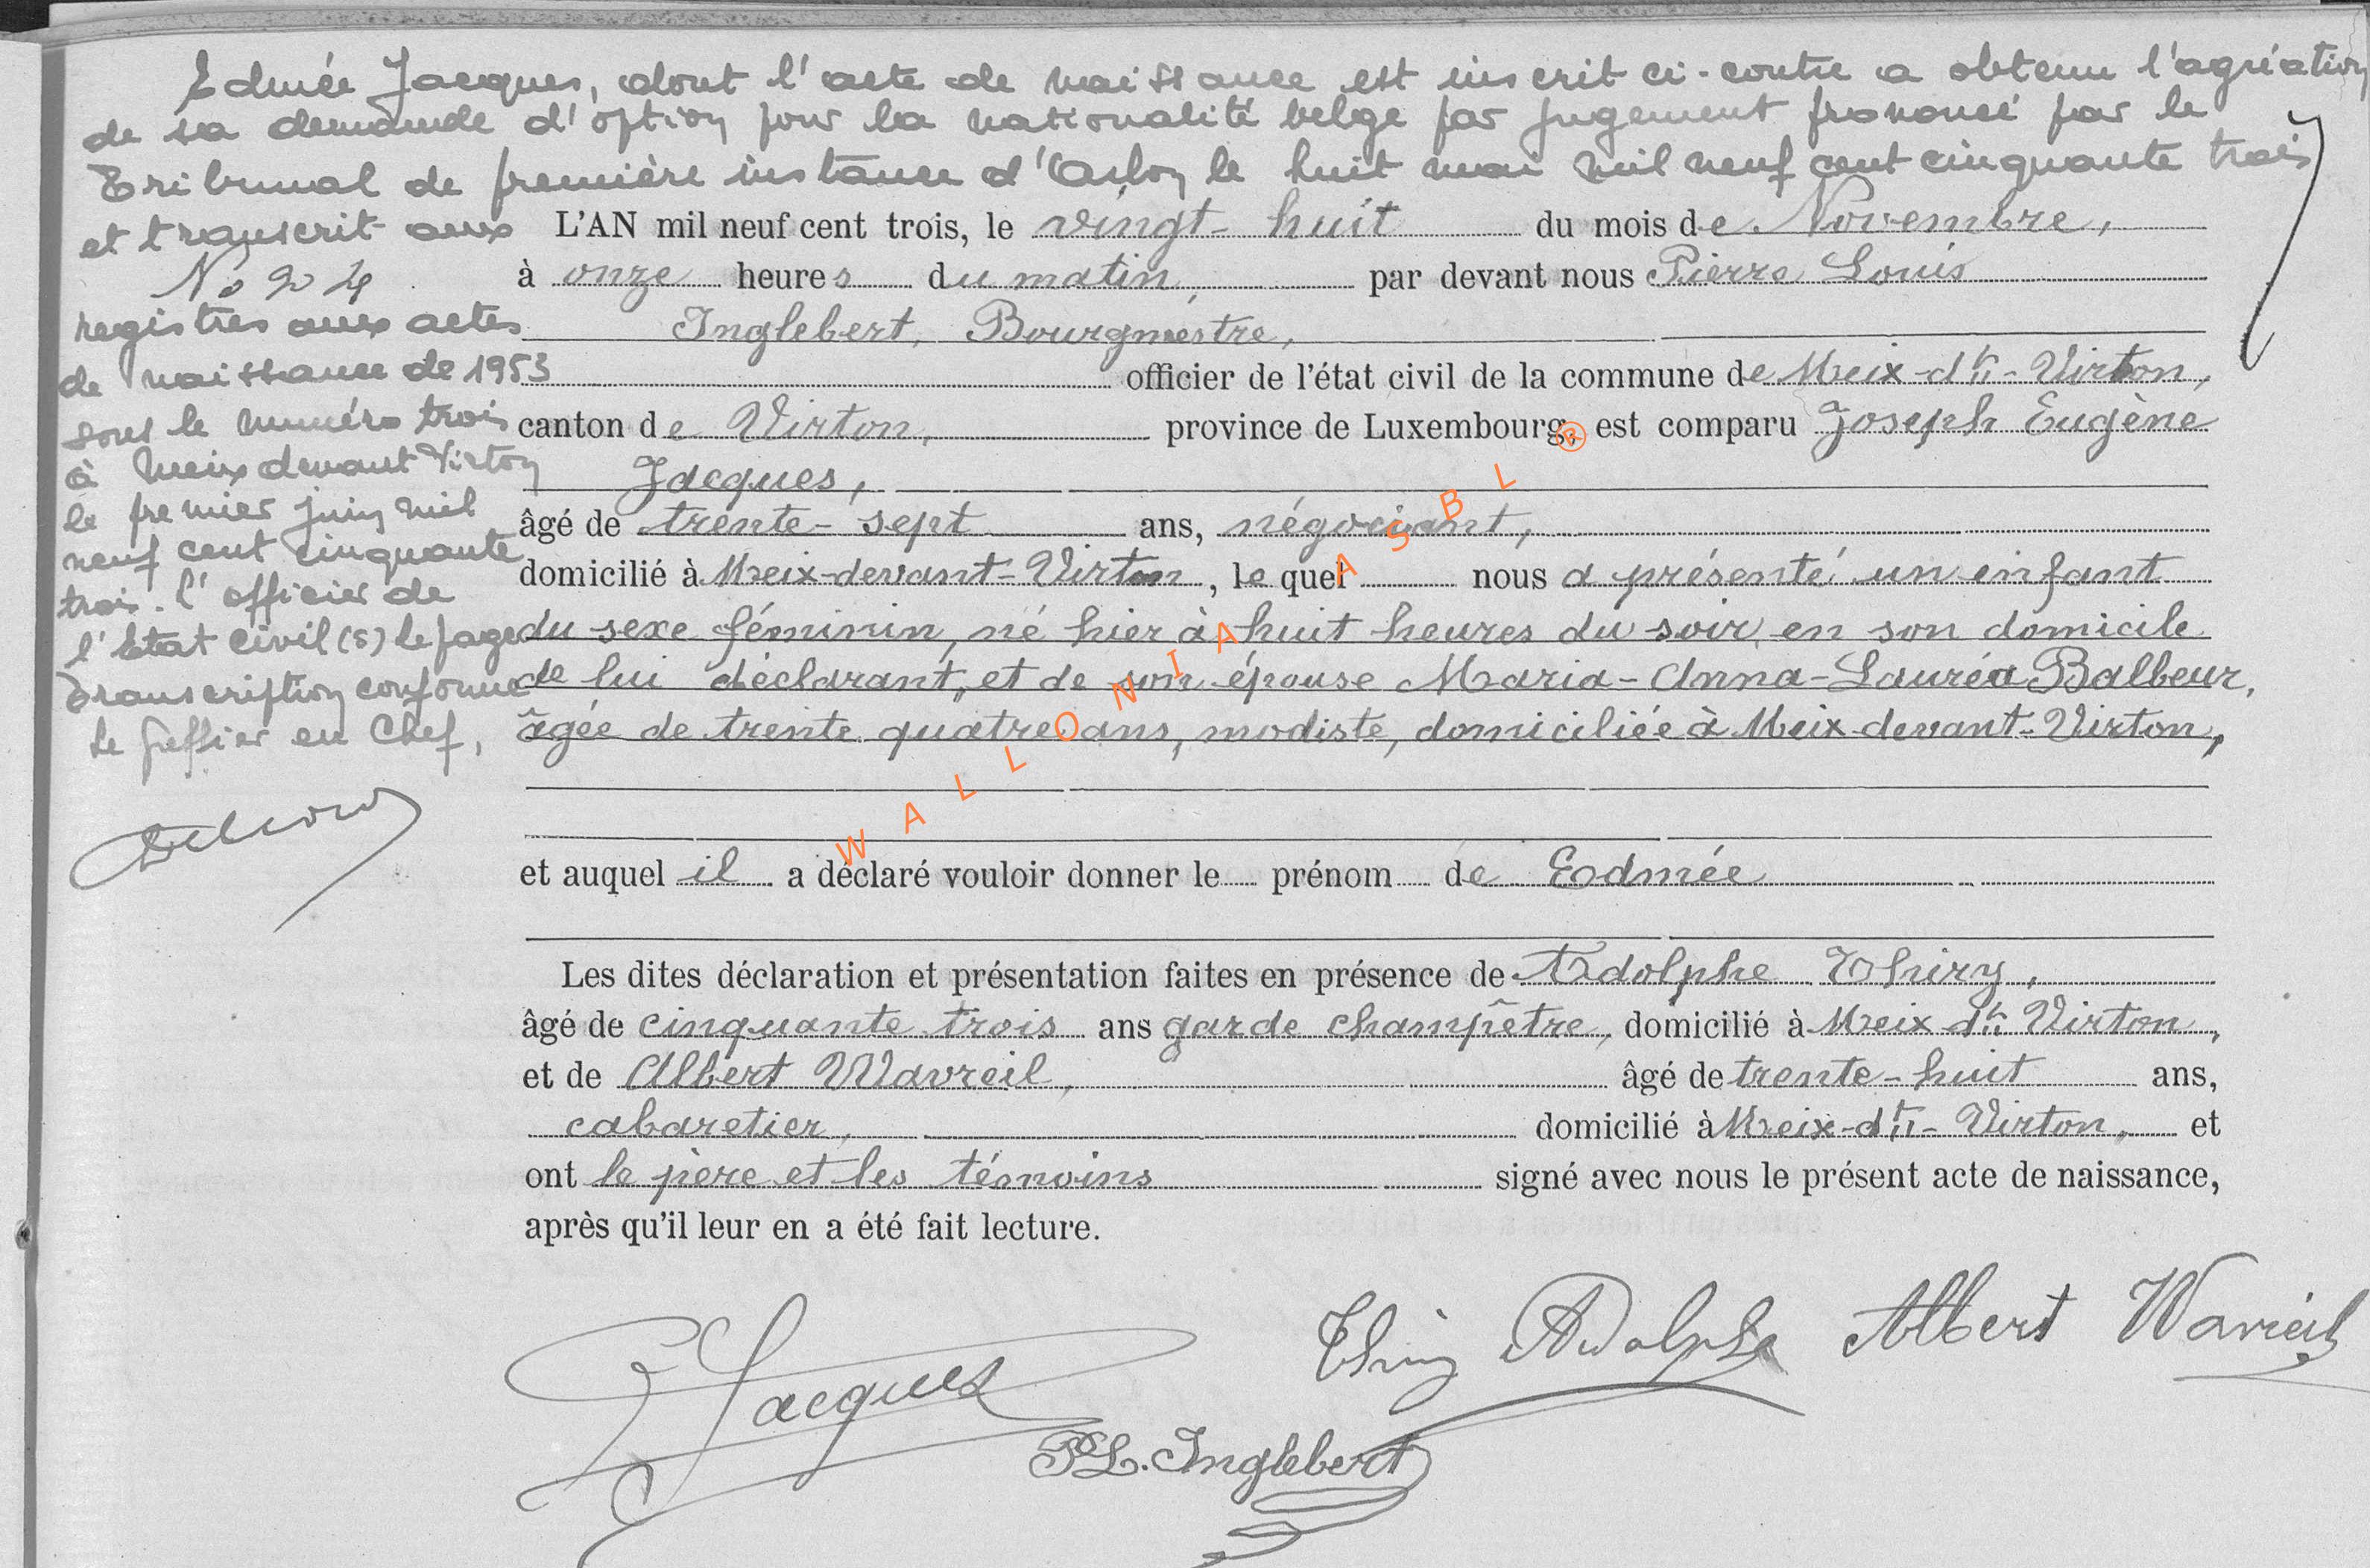 Edmée Jacques, dont l'acte de naissance est inscrit ci-contre a obtenu l'agréation
de sa demande d'option pour la nationalité belge par jugement prononcé par le
Tribunal de première instance d'Arlon le huit mai mil neuf cent cinquante trois
et transcrit aux
registres aux actes
de naissance de 1953
sous le numéro trois
à Meix devant Virton
le premier juin mil
neuf cent cinquante
trois. l'officier de
l'Etat civil (s) lefage
Transcription conforme
Le Greffier en Chef,
No 24
L'AN mil neuf cent trois, le vingt-huit du mois de Novembre,
à onze heures du matin, par devant nous Pierre Louis
Inglebert, Bourgmestre,
officier de l'état civil de la commune de Meix-dt-Virton,
canton de Virton, province de Luxembourg, est comparu Joseph Eugène
Jacques,
âgé de trente-sept ans, négociant,
domicilié à Meix-devant-Virton, le quel nous a présenté un enfant
du sexe féminin, né hier à huit heures du soir, en son domicile
de lui déclarant, et de son épouse Maria-Anna-Lauréa Balbeur,
âgée de trente quatre ans, modiste, domiciliée à Meix-devant-Virton,
et auquel il a déclaré vouloir donner le prénom de Edmée
Les dites déclaration et présentation faites en présence de Adolphe Thiry,
âgé de cinquante trois ans garde champêtre, domicilié à Meix dt Virton,
et de Albert Wavreil, âgé de trente-huit ans,
cabaretier, domicilié à Meix-dt-Virton, et
ont le père et les témoins signé avec nous le présent acte de naissance,
après qu'il leur en a été fait lecture.
Jacques
Thiry Adolphe Albert Wavreil
PL. Inglebert
WALLONIA ASBL ®